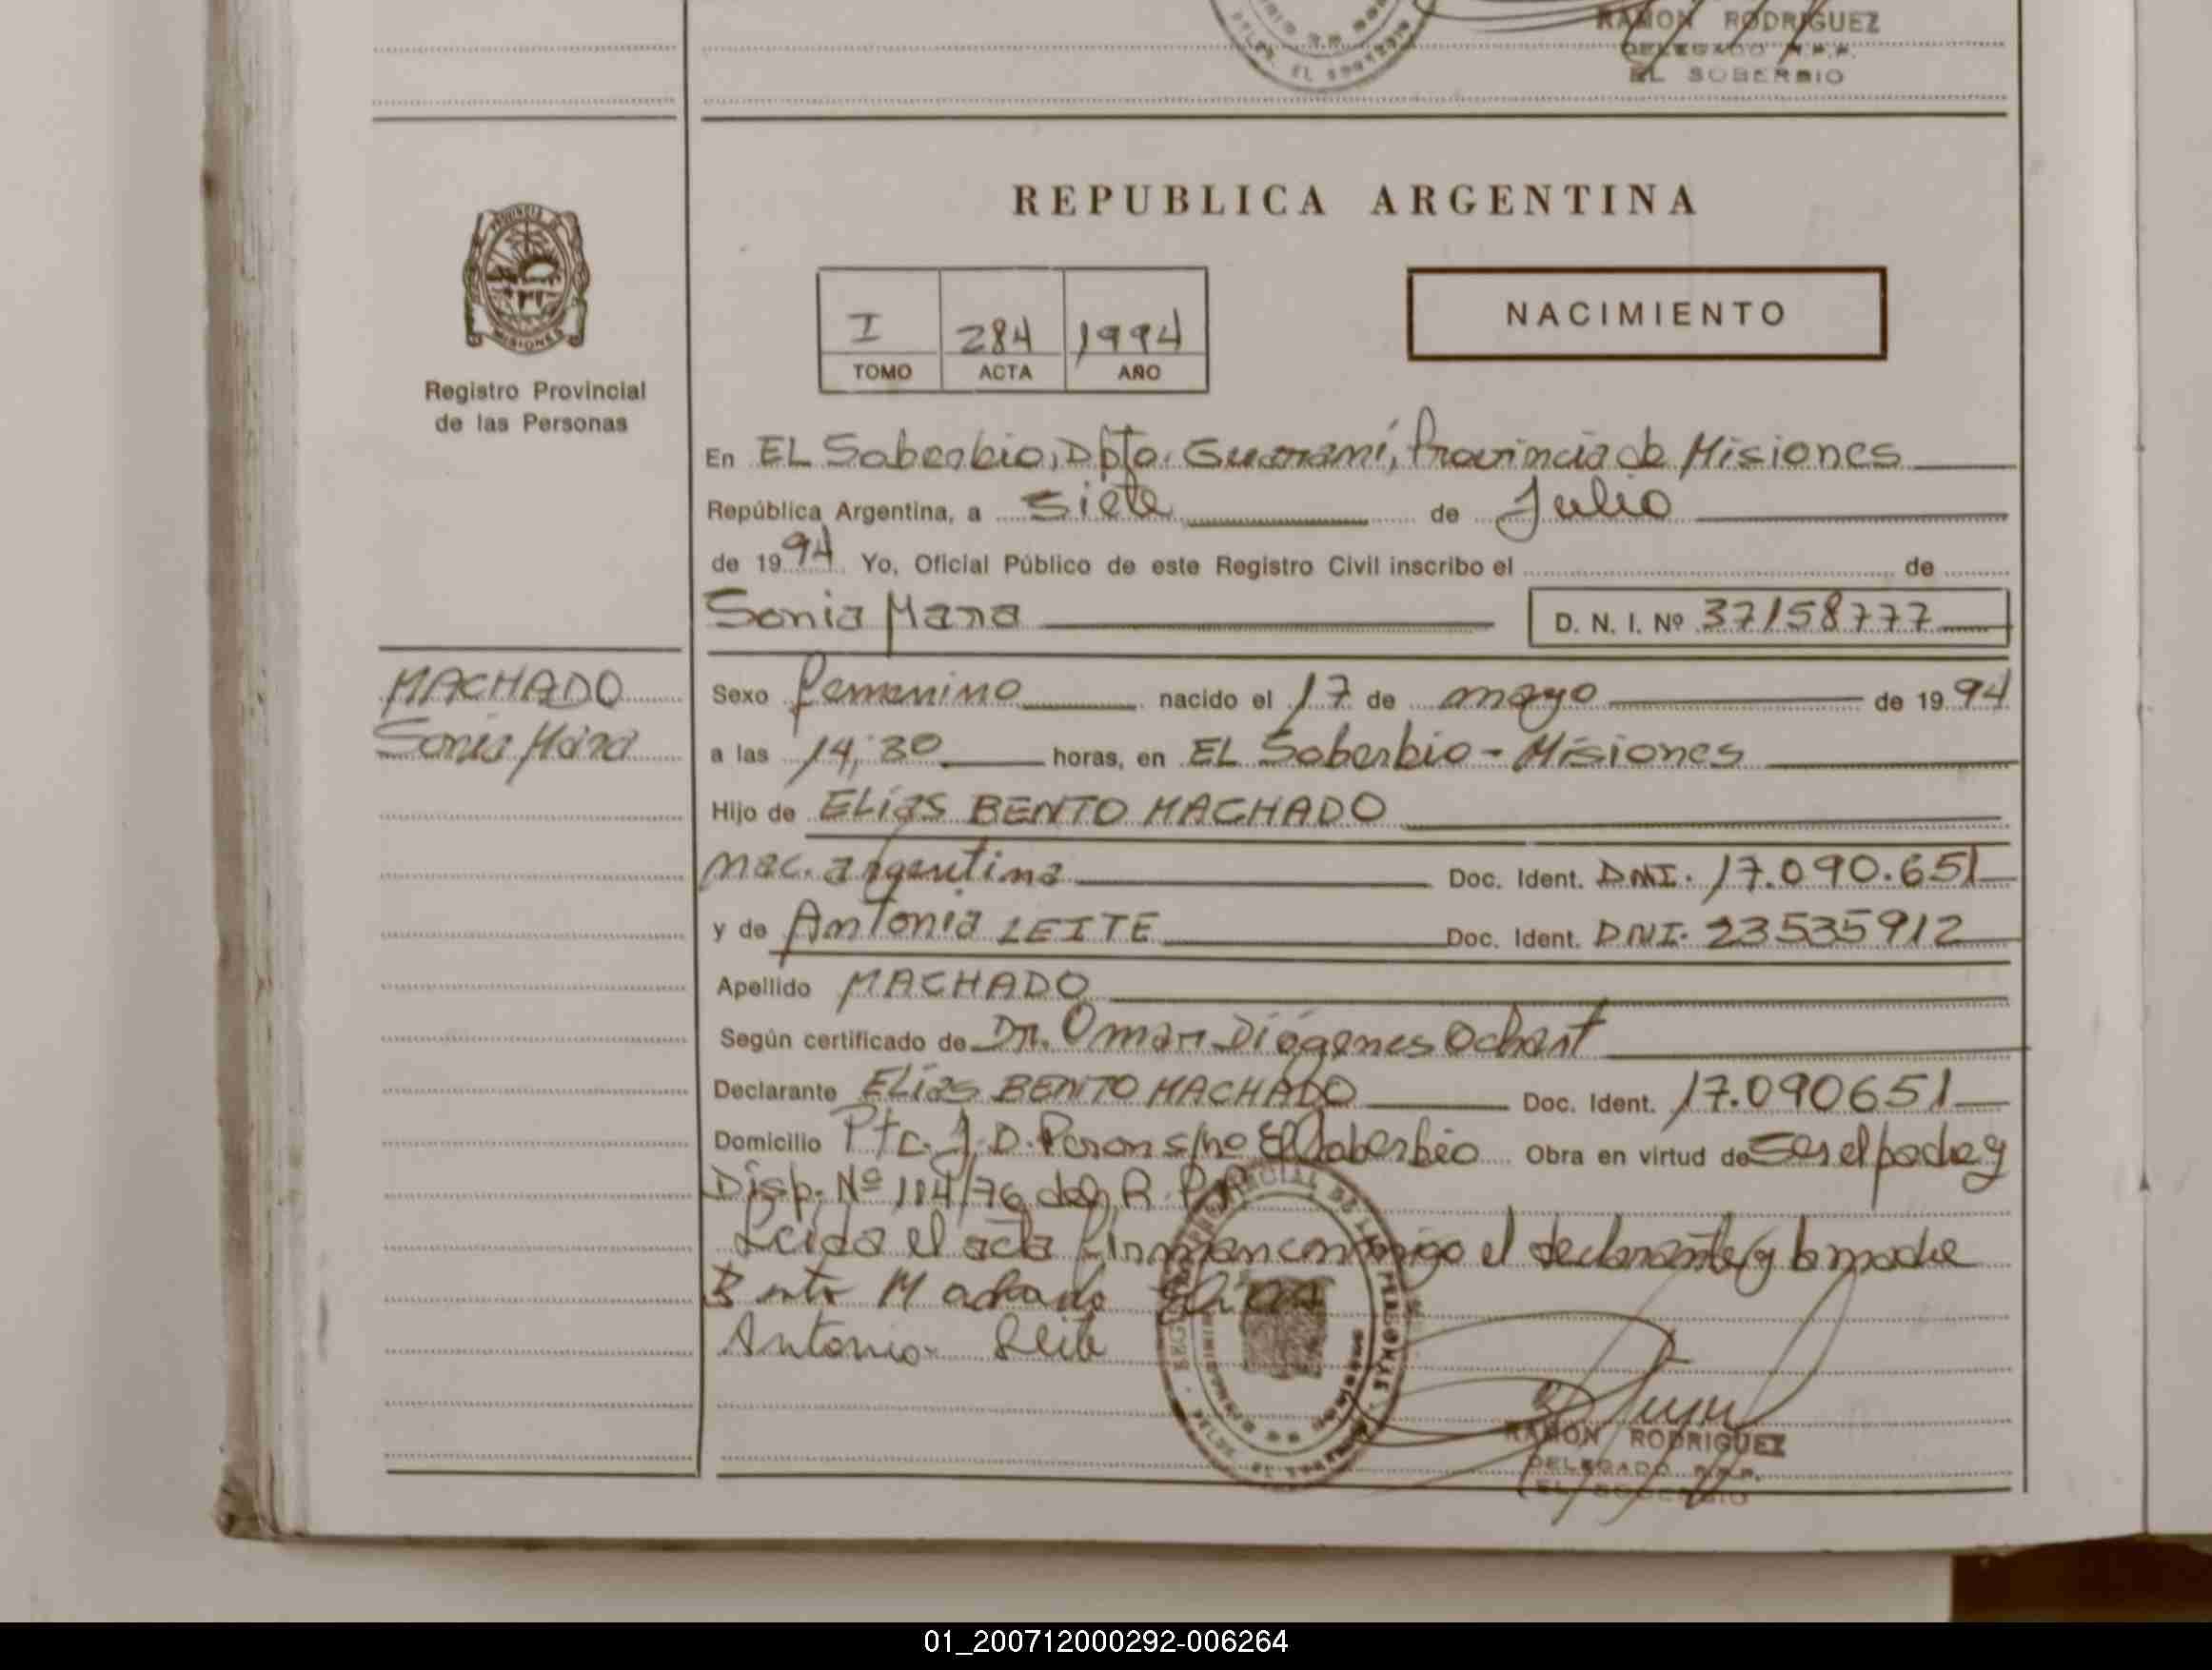 RAMON RODRIGUEZ
DELEGADO R.P.P.
EL SOBERBIO
REPUBLICA ARGENTINA
PROVINCIA
MISIONES
Registro Provincial
de las Personas
I 284 1994
TOMO ACTA AÑO
NACIMIENTO
En EL Soberbio, Dpto. Guaraní, Provincia de Misiones
República Argentina, a Siete de Julio
de 1994 Yo, Oficial Público de este Registro Civil inscribo el de
Sonia Mara D. N. I. Nº 37158777
MACHADO
Sonia Mara
Sexo femenino nacido el 17 de mayo de 1994
a las 14,30 horas, en EL Soberbio - Misiones
Hijo de ELias BENTO MACHADO
nac. argentina Doc. Ident. DNI. 17.090.651
y de Antonia LEITE Doc. Ident. DNI. 23535912
Apellido MACHADO
Según certificado de Dr. Omar Diógenes Ochart
Declarante ELias BENTO MACHADO Doc. Ident. 17.090651
Domicilio Pte. J. D. Peron s/no El Soberbio Obra en virtud de ser el padre y
Disp. Nº 114/76 del R. P. P.
Leida el acta firman conmigo el declarante y la madre
Bento Machado Elias
Antonia Leite
RAMON RODRIGUEZ
DELEGADO R.P.P.
EL SOBERBIO
01_200712000292-006264